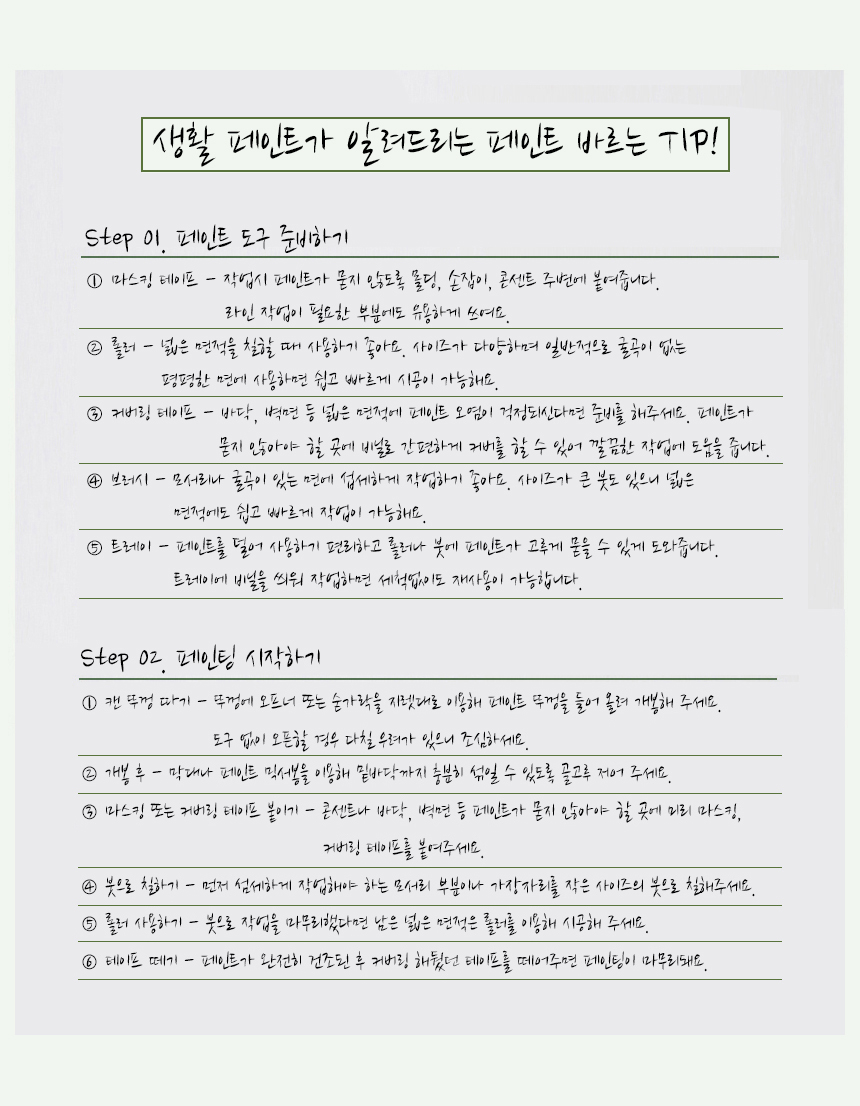 생활 페인트가 알려드리는 페인트 바르는 TIP!
Step 01. 페인트 도구 준비하기
① 마스킹 테이프 - 작업시 페인트가 묻지 않도록 몰딩, 손잡이, 콘센트 주변에 붙여줍니다.
라인 작업이 필요한 부분에도 유용하게 쓰여요.
② 롤러 - 넓은 면적을 칠할 때 사용하기 좋아요. 사이즈가 다양하며 일반적으로 굴곡이 없는
평평한 면에 사용하면 쉽고 빠르게 시공이 가능해요.
③ 커버링 테이프 - 바닥, 벽면 등 넓은 면적에 페인트 오염이 걱정되신다면 준비를 해주세요. 페인트가
묻지 않아야 할 곳에 비닐로 간편하게 커버를 할 수 있어 깔끔한 작업에 도움을 줍니다.
④ 브러시 - 모서리나 굴곡이 있는 면에 섬세하게 작업하기 좋아요. 사이즈가 큰 붓도 있으니 넓은
면적에도 쉽고 빠르게 작업이 가능해요.
⑤ 트레이 - 페인트를 덜어 사용하기 편리하고 롤러나 붓에 페인트가 고루게 묻을 수 있게 도와줍니다.
트레이에 비닐을 씌워 작업하면 세척없이도 재사용이 가능합니다.
Step 02. 페인팅 시작하기
① 캔 뚜껑 따기 - 뚜껑에 오프너 또는 숟가락을 지렛대로 이용해 페인트 뚜껑을 들어 올려 개봉해 주세요.
도구 없이 오픈할 경우 다칠 우려가 있으니 조심하세요.
② 개봉 후 - 막대나 페인트 믹서봉을 이용해 밑바닥까지 충분히 섞일 수 있도록 골고루 저어 주세요.
③ 마스킹 또는 커버링 테이프 붙이기 - 콘센트나 바닥, 벽면 등 페인트가 묻지 않아야 할 곳에 미리 마스킹,
커버링 테이프를 붙여주세요.
④ 붓으로 칠하기 - 먼저 섬세하게 작업해야 하는 모서리 부분이나 가장자리를 작은 사이즈의 붓으로 칠해주세요.
⑤ 롤러 사용하기 - 붓으로 작업을 마무리했다면 남은 넓은 면적은 롤러를 이용해 시공해 주세요.
⑥ 테이프 떼기 - 페인트가 완전히 건조된 후 커버링 해뒀던 테이프를 떼어주면 페인팅이 마무리돼요.